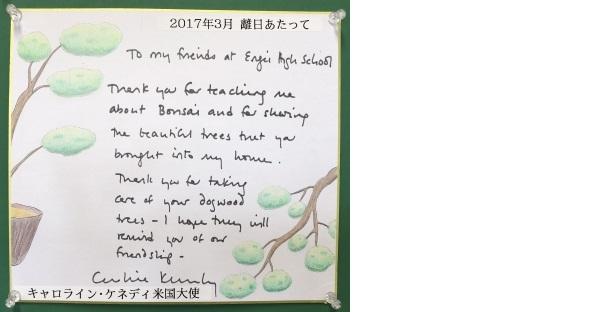 2017年3月 離日あたって
To my friends at Engei High School
Thank you for teaching me
about Bonsai and for sharing
the beautiful trees that you
brought into my home.
Thank you for taking
care of your dogwood
trees - I hope they will
remind you of our
friendship -
Caroline Kennedy
キャロライン・ケネディ米国大使